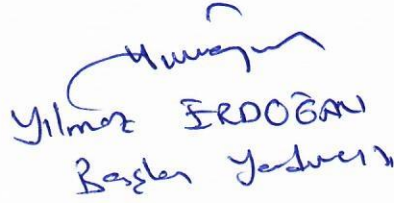 Yılmaz ERDOĞAN
Başkan Yardımcısı